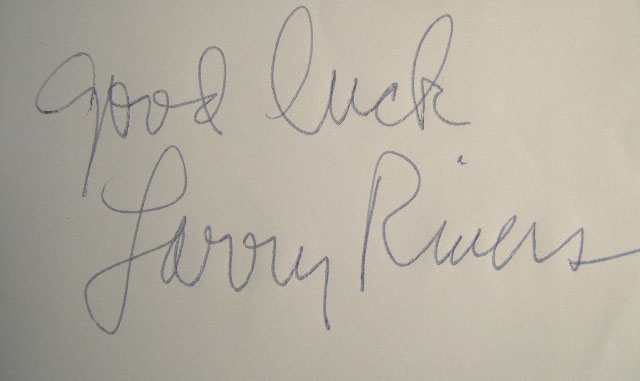 good luck
Larry Rivers